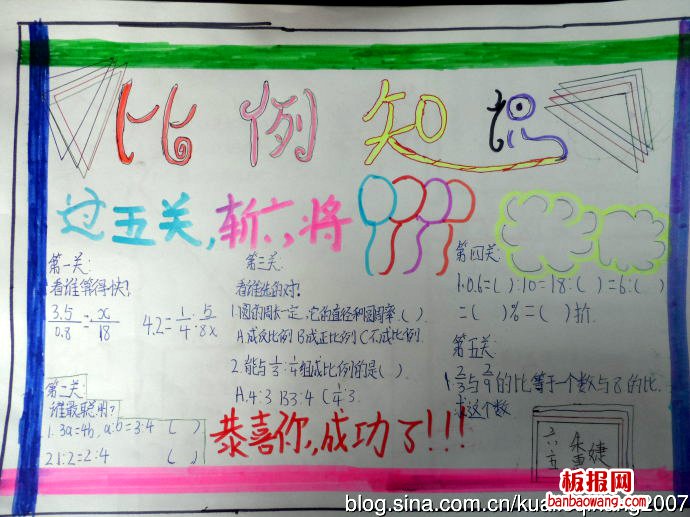 比例知识
过五关,斩六将
第一关:
看谁算得快!
3.5/0.8=x/18 4.2=1/4:5/8x
第二关:
谁最聪明?
1.3a=4b, a:b=3:4 ( )
2.1:2=2:4 ( )
第三关:
看谁选的对!
1.圆的周长一定,它的直径和圆周率( ).
A.成反比例 B.成正比例 C.不成比例.
2.能与1/3:1/4组成比例的是( ).
A.4:3 B3:4 C1/4:3.
第四关:
1.0.6=( ):10=18:( )=6:( )
=( )%=( )折.
第五关
1.2/3与2/9的比等于一个数与8的比.
求这个数
恭喜你,成功了!!!
六
五
婕
板报网
banbaowang.com